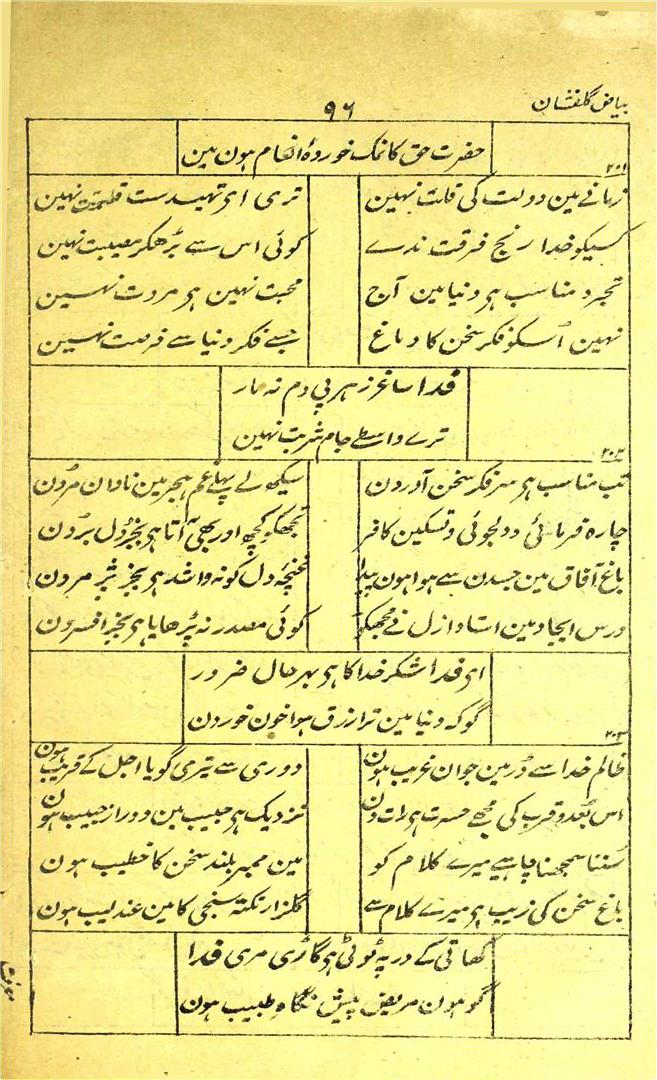 بیاض گلفشان
۹۶
حضرت حق کا نمک خوردۂ انعام ہون مین
۲۰۱
زمانے مین دولت کی قلت نہین
تری ای تہیدست قسمت نہین
کسیکو خدا رنج فرقت ندے
کوئی اس سے بڑھکر مصیبت نہین
تجرد مناسب ہو دنیا مین آج
محبت نہین ہو مروت نہین
نہین اُسکو فکر سخن کا دماغ
جسے فکر دنیا سے فرصت نہین
فدا ساغر زہر پی دم نہ مار
ترے واسطے جام شربت نہین
۲۰۲
تب مناسب ہو سر فکر سخن آوردن
سیکھ لے پہلے غم ہجر مین نادان مردن
چارہ فرمائی و دلجوئی و تسکین کا فر
تجھکو کچھ اور بھی آتا ہو بجز دل بردن
باغ آفاق مین جسدن سے ہوا ہون پیدا
غنچۂ دل کو نہ واشد ہو بجز پژمردن
درس ایجاد مین استاد ازل نے مجھکو
کوئی مصدر نہ پڑھایا ہو بجز افسردن
ای فدا شکر خدا کا ہو بہر حال ضرور
گو کہ دنیا مین ترا رزق ہوا خون خوردن
۲۰۳
ظالم خدا سے ڈر مین جوان غریب ہون
دوری سے تیری گویا اجل کے قریب ہون
اس بُعد و قرب کی مجھے حسرت ہو رات دن
نزدیک ہو حبیب مین دور از حبیب ہون
سُننا سمجھنا چاہیے میرے کلام کو
مین ممبر بلند سخن کا خطیب ہون
باغ سخن کی زیب ہو میرے کلام سے
گلزار نکتہ سنجی کا مین عندلیب ہون
گھاتی کے در پہ ٹوٹی ہو گاڑی مری فدا
گو ہون مریض پیش نگاہ طبیب ہون